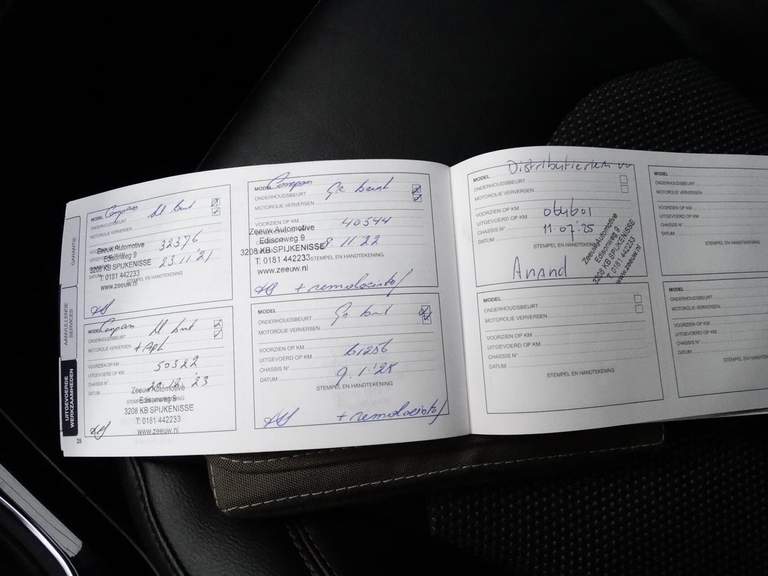 GARANTIE
AANVULLENDE
SERVICES
UITGEVOERDE
WERKZAAMHEDEN
28
MODEL
ONDERHOUDSBEURT
MOTOROLIE VERVERSEN
32376
23.11.'21
Zeeuw Automotive
Edisonweg 9
3208 KB SPIJKENISSE
T: 0181 442233
www.zeeuw.nl
MODEL
ONDERHOUDSBEURT
MOTOROLIE VERVERSEN
VOORZIEN OP KM
40544
8.11.'22
Zeeuw Automotive
Edisonweg 9
3208 KB SPIJKENISSE
T: 0181 442233
www.zeeuw.nl
STEMPEL EN HANDTEKENING
+ remvloeistof
MODEL
ONDERHOUDSBEURT
MOTOROLIE VERVERSEN
VOORZIEN OP KM
UITGEVOERD OP KM
50322
CHASSIS N°
DATUM
'23
Zeeuw Automotive
Edisonweg 9
3208 KB SPIJKENISSE
T: 0181 442233
www.zeeuw.nl
MODEL
ONDERHOUDSBEURT
MOTOROLIE VERVERSEN
VOORZIEN OP KM
UITGEVOERD OP KM
61256
CHASSIS N°
DATUM
9.1.'25
STEMPEL EN HANDTEKENING
+ remvloeistof
MODEL
Distributieriem
ONDERHOUDSBEURT
MOTOROLIE VERVERSEN
VOORZIEN OP KM
UITGEVOERD OP KM
CHASSIS N°
11-07-'25
DATUM
STEMPEL EN HANDTEKENING
Anand
Zeeuw Automotive
Edisonweg 9
3208 KB SPIJKENISSE
T: 0181 442233
www.zeeuw.nl
MODEL
ONDERHOUDSBEURT
MOTOROLIE VERVERSEN
VOORZIEN OP KM
UITGEVOERD OP KM
CHASSIS N°
DATUM
MODEL
ONDERHOUDSBEURT
MOTOROLIE VERVERSEN
VOORZIEN OP KM
UITGEVOERD OP KM
CHASSIS N°
DATUM
STEMPEL EN HANDTEKENING
MODEL
ONDERHOUDSBEURT
MOTOROLIE VERVERSEN
VOORZIEN OP KM
UITGEVOERD OP KM
CHASSIS N°
DATUM